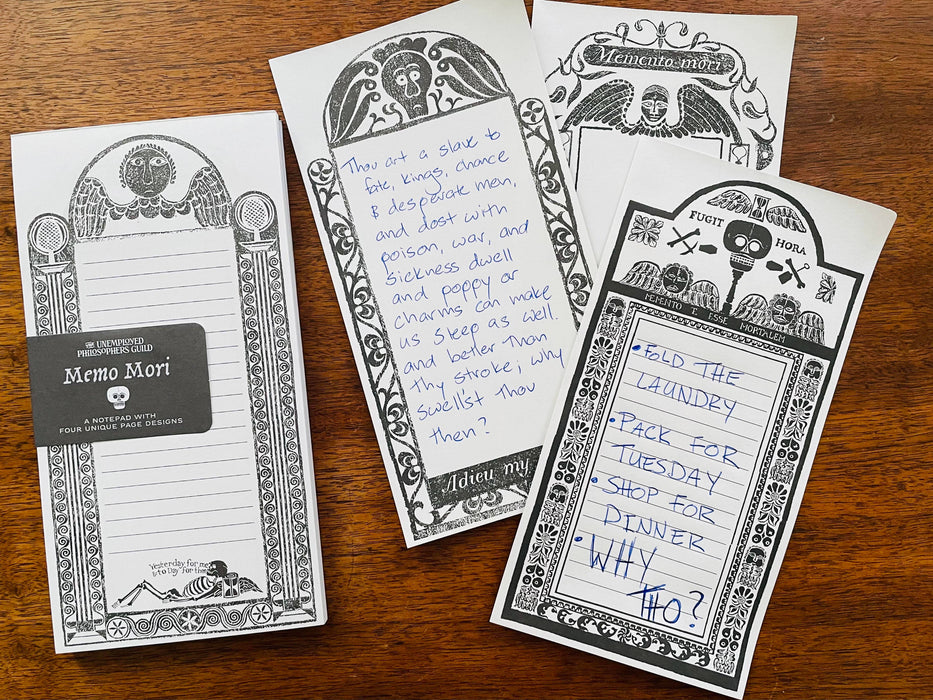 THE UNEMPLOYED
PHILOSOPHERS GUILD
Memo Mori
A NOTEPAD WITH
FOUR UNIQUE PAGE DESIGNS
Yesterday for me
& to Day for thee
Thou art a slave to
fate, kings, chance
& desperate men,
and dost with
poison, war, and
sickness dwell
and poppy or
charms can make
us sleep as well
and better than
thy stroke; why
swell'st thou
then?
Adieu my
Memento mori
FUGIT HORA
MEMENTO TE ESSE MORTALEM
• FOLD THE
LAUNDRY
• PACK FOR
TUESDAY
• SHOP FOR
DINNER
• WHY
THO?